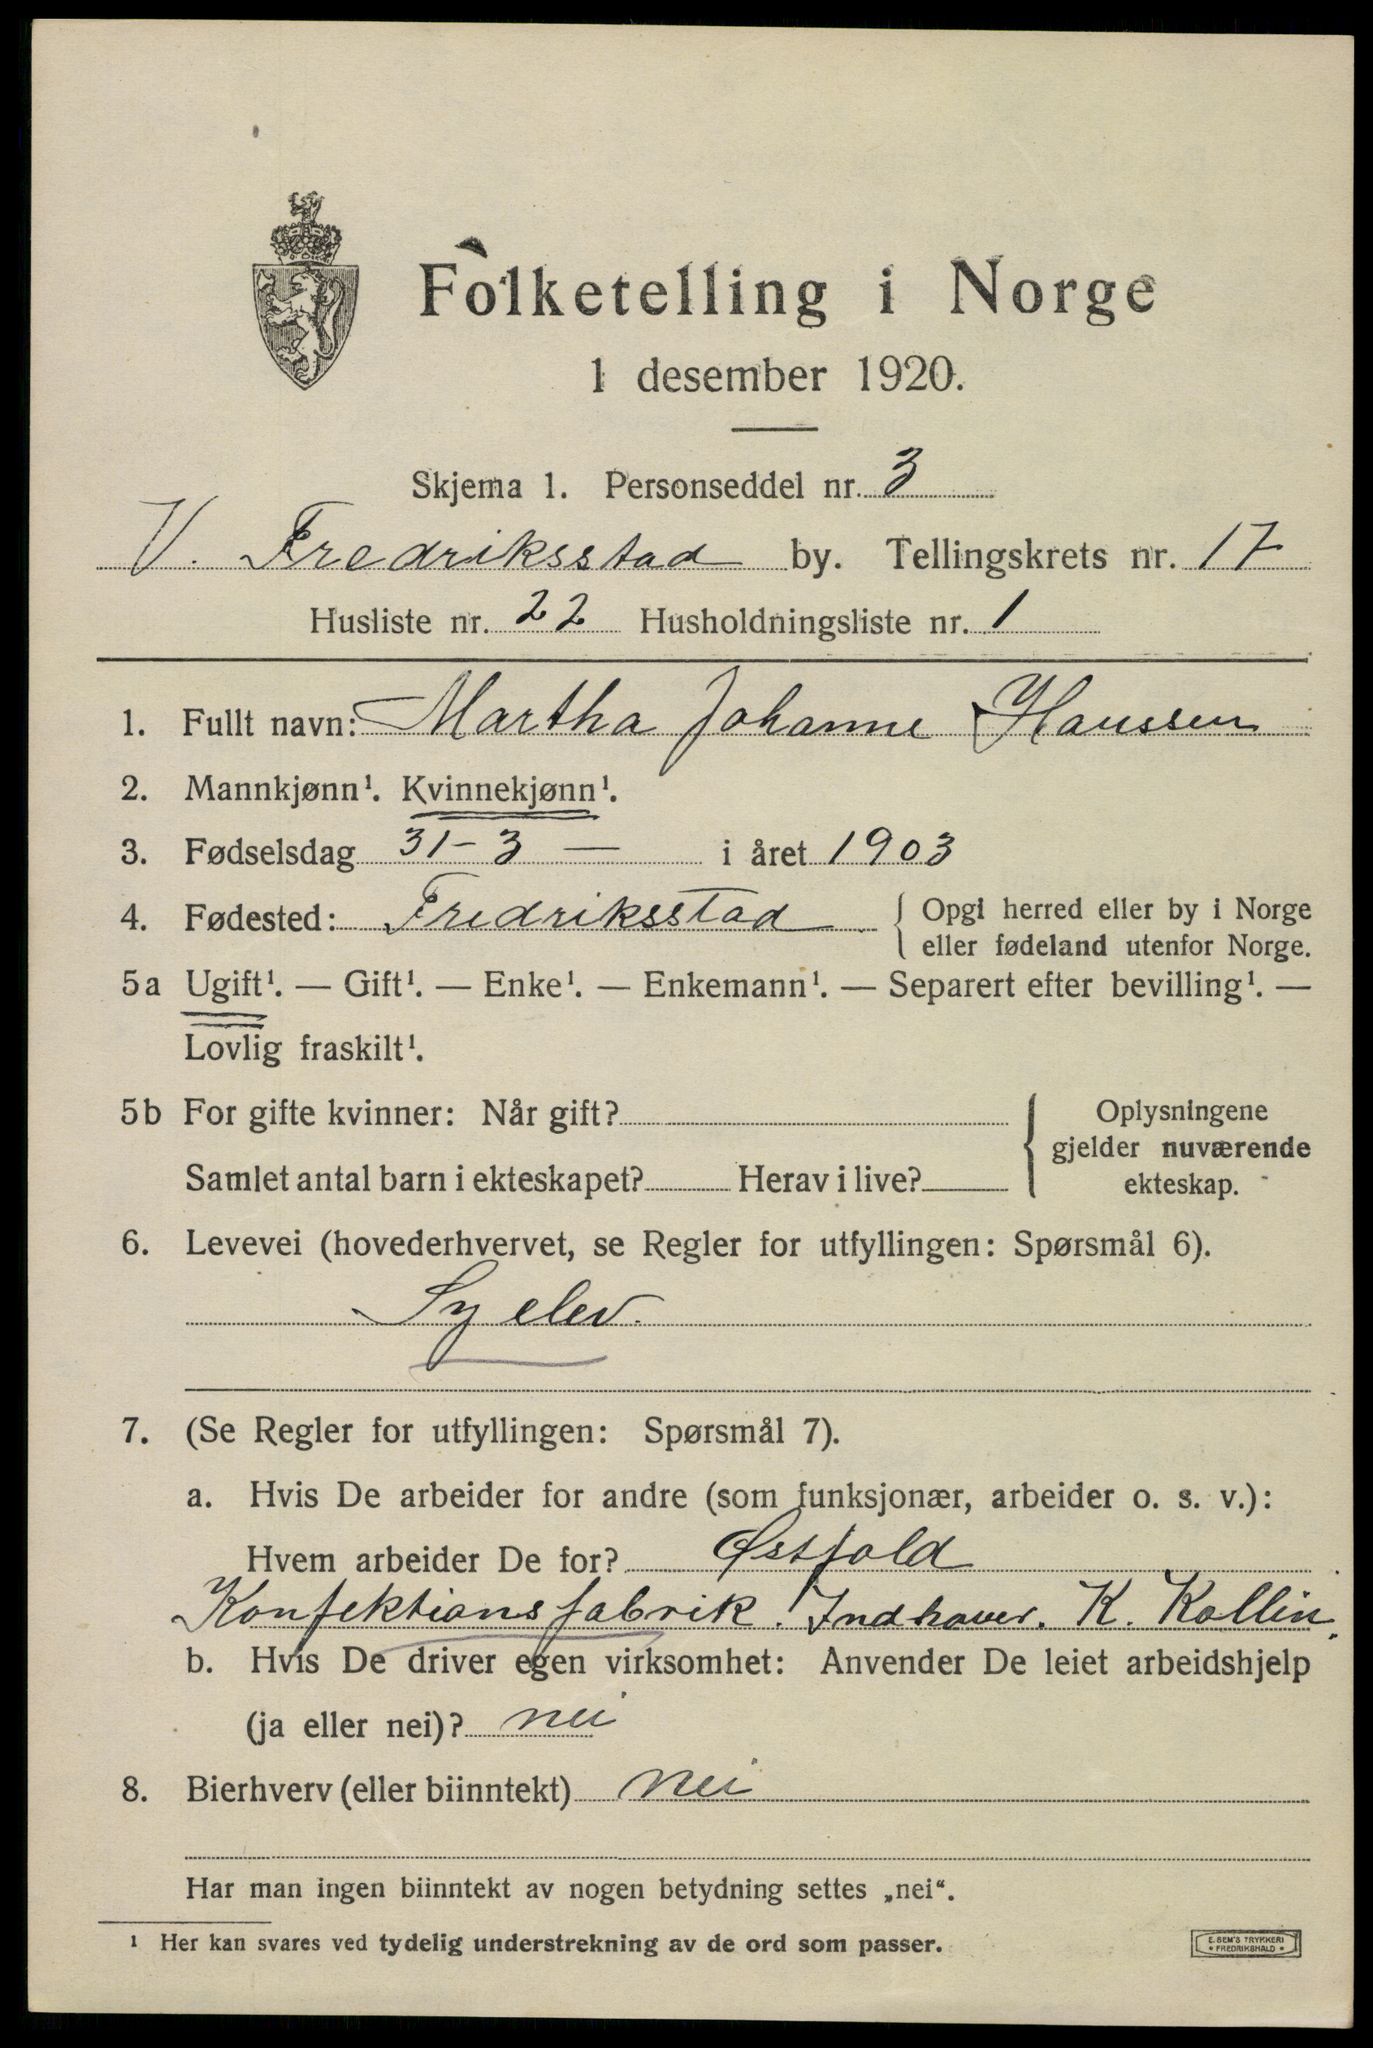 Folketelling i Norge
1 desember 1920.
Skjema 1. Personseddel nr. 3
V. Fredriksstad by. Tellingskrets nr. 17
Husliste nr. 22 Husholdningsliste nr. 1
1. Fullt navn: Martha Johanne Hanssen
2. Mannkjønn¹. Kvinnekjønn¹.
3. Fødselsdag 31-3 — i året 1903
4. Fødested: Fredriksstad { Opgi herred eller by i Norge
eller fødeland utenfor Norge.
5a Ugift¹. — Gift¹. — Enke¹. — Enkemann¹. — Separert efter bevilling¹. —
Lovlig fraskilt¹.
5b For gifte kvinner: Når gift? { Oplysningene
gjelder nuværende
Samlet antal barn i ekteskapet? Herav i live? ekteskap.
6. Levevei (hovederhvervet, se Regler for utfyllingen: Spørsmål 6).
Sy elev.
7. (Se Regler for utfyllingen: Spørsmål 7).
a. Hvis De arbeider for andre (som funksjonær, arbeider o. s. v.):
Hvem arbeider De for? Østfold
Konfektionsfabrik. Indhaver. K. Kollin.
b. Hvis De driver egen virksomhet: Anvender De leiet arbeidshjelp
(ja eller nei)? nei
8. Bierhverv (eller biinntekt) nei
Har man ingen biinntekt av nogen betydning settes „nei“.
¹ Her kan svares ved tydelig understrekning av de ord som passer.
E. SEM'S TRYKKERI
• FREDRIKSHALD •